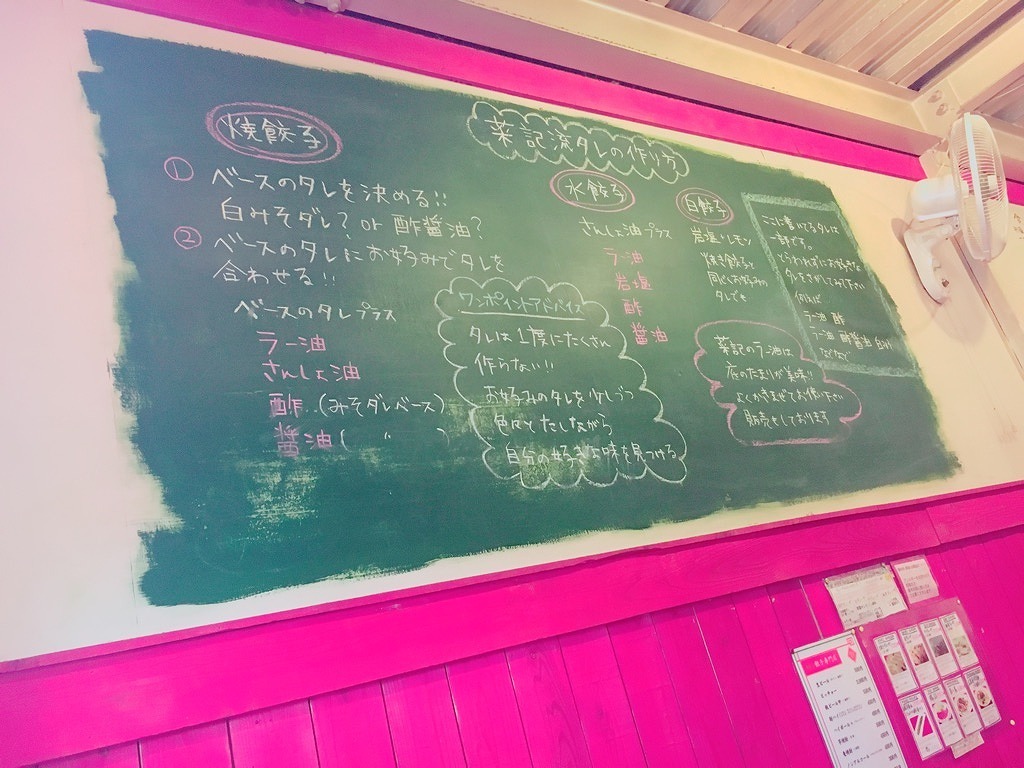 薬記流タレの作り方
焼餃子
① ベースのタレを決める!!
白みそダレ? or 酢醤油?
② ベースのタレにお好みでタレを
合わせる!!
ベースのタレプラス
ラー油
さんしょ油
酢 (みそダレベース)
醤油 ( 〃 )
ワンポイントアドバイス
タレは1度にたくさん
作らない!!
お好みのタレを少しづつ
色々とたしながら
自分の好きな味を見つける
水餃子
さんしょ油プラス
ラー油
岩塩
酢
醤油
白餃子
岩塩 レモン
焼き餃子と
同じくお好みの
タレでも
薬記のラー油は
底のたまりが美味!!
よくかきまぜてお使い下さい
販売もしております
ここに書いてるタレは
一部です。
とらわれずにお好きな
タレをさがしてみて下さい
例えば
ラー油 酢
ラー油 酢醤油 白みそ
などなど
餃子専門店
生ビール